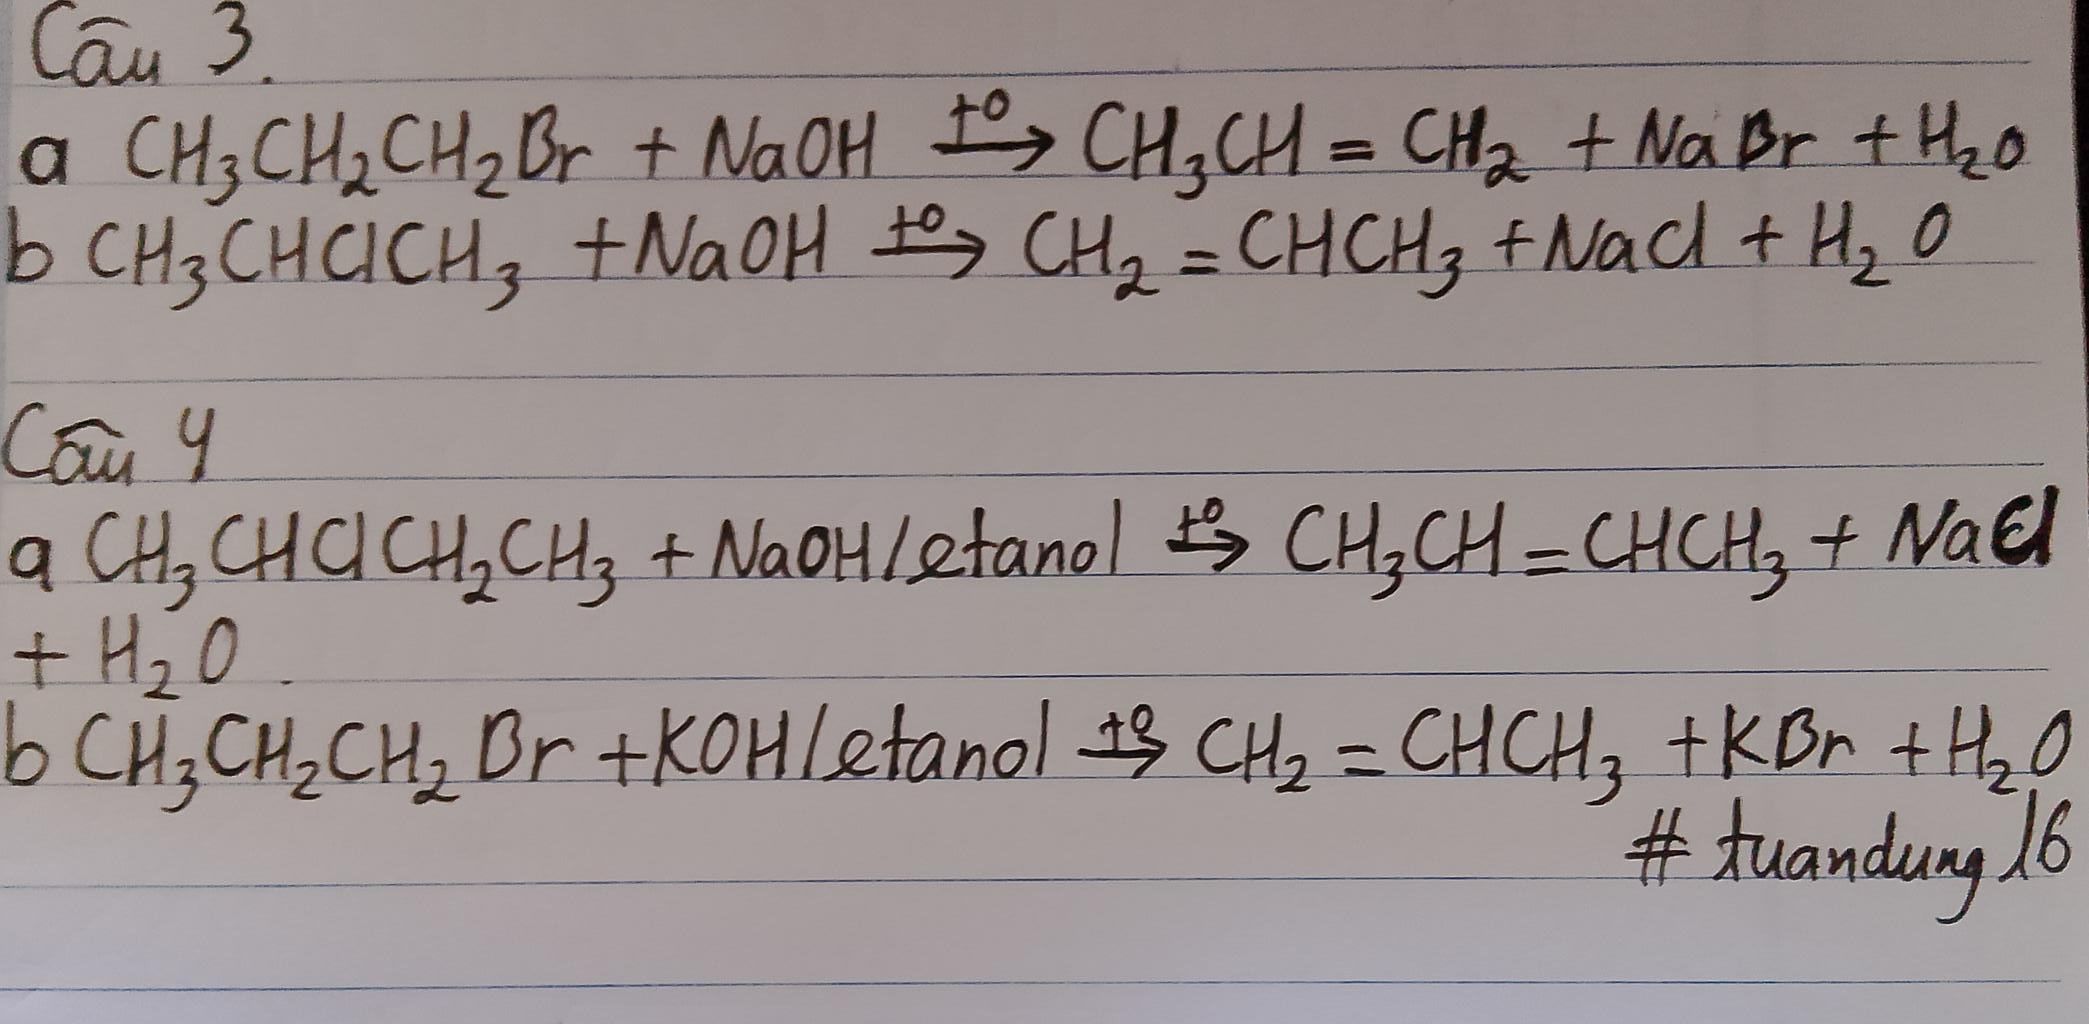 Câu 3.
a CH₃CH₂CH₂Br + NaOH →^{t⁰} CH₃CH = CH₂ + NaBr + H₂O
b CH₃CHClCH₃ + NaOH →^{t⁰} CH₂ = CHCH₃ + NaCl + H₂O
Câu 4
a CH₃CHClCH₂CH₃ + NaOH/etanol →^{t⁰} CH₃CH = CHCH₃ + NaCl
+ H₂O.
b CH₃CH₂CH₂Br + KOH/etanol →^{t⁰} CH₂ = CHCH₃ + KBr + H₂O
# tuandung 16